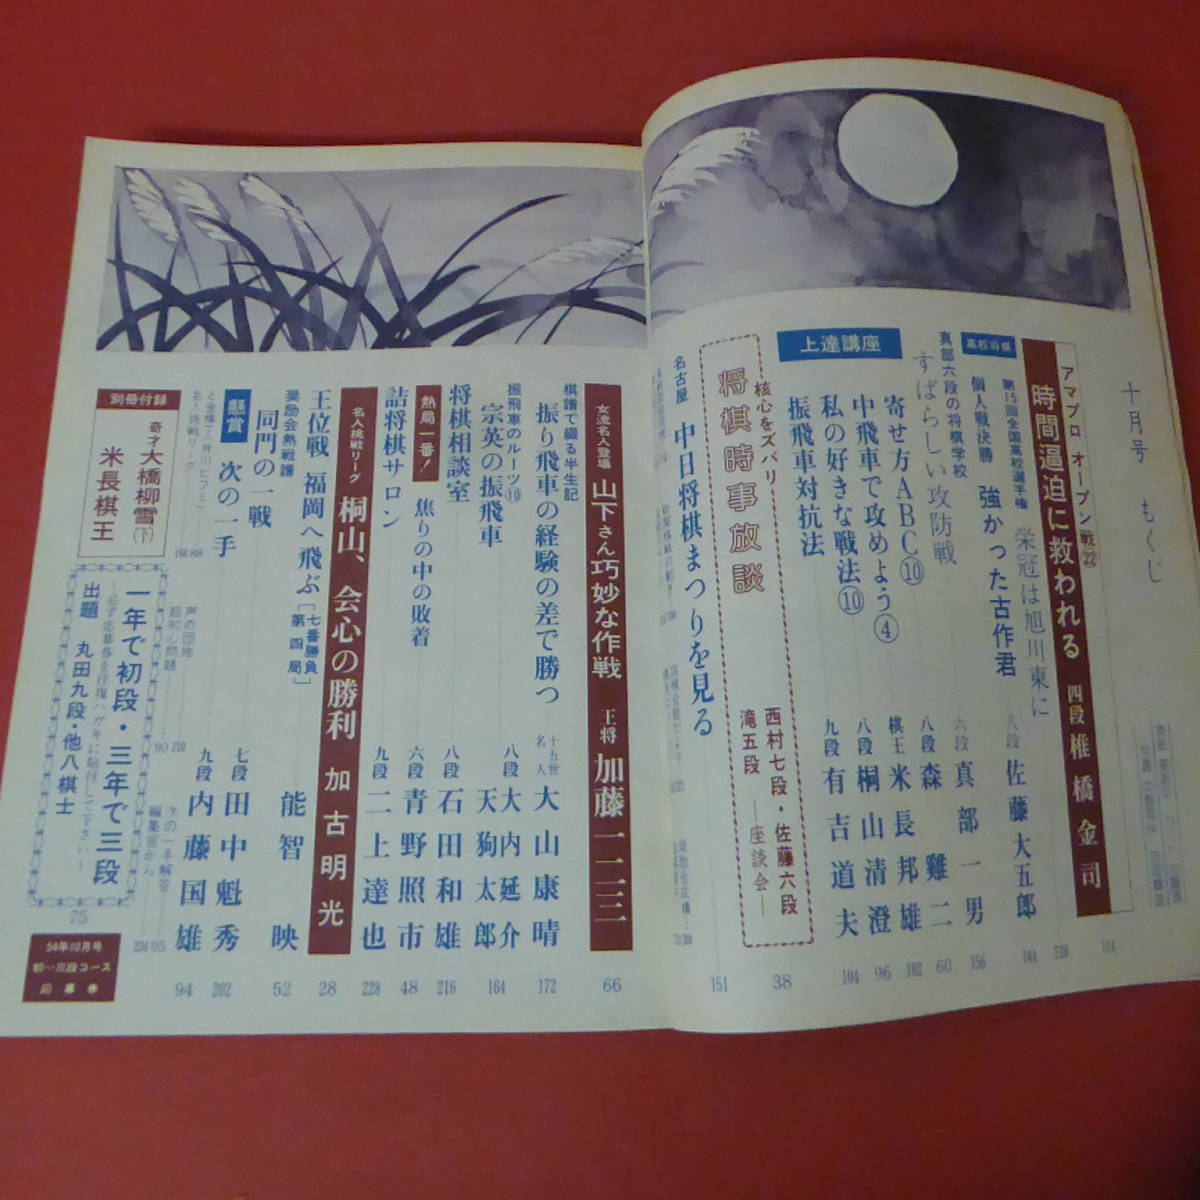 十月号 もくじ
アマプロ オープン戦㉒
時間逼迫に救われる 四段 椎橋金司
高校将棋
第15回全国高校選手権
栄冠は旭川東に
個人戦決勝 強かった古作君 八段 佐藤大五郎 144
真部六段の将棋学校
すばらしい攻防戦 六段 真部一男 156
上達講座
寄せ方ABC⑩ 八段 森雞二 60
中飛車で攻めよう④ 棋王 米長邦雄 182
私の好きな戦法⑩ 八段 桐山清澄 96
振飛車対抗法 九段 有吉道夫 104
核心をズバリ
将棋時事放談
西村七段・佐藤六段
滝五段 ―座談会― 38
名古屋 中日将棋まつりを見る 151
女流名人登場 山下さん巧妙な作戦 王将 加藤一二三 66
棋譜で綴る半生記
振り飛車の経験の差で勝つ 十五世名人 大山康晴 172
振飛車のルーツ⑩
宗英の振飛車 八段 大内延介
天狗太郎 164
将棋相談室 八段 石田和雄 216
熱局一番! 焦りの中の敗着 六段 青野照市 48
詰将棋サロン 九段 二上達也 228
名人挑戦リーグ 桐山、会心の勝利 加古明光 28
王位戦 福岡へ飛ぶ [七番勝負 第四局]
奨励会熱戦譜
同門の一戦 能智映 52
懸賞 次の一手 七段 田中魁秀 202
九段 内藤国雄 94
名人挑戦リーグ
声の団地 210
90
次の一手解答
編集室から 234
別冊付録
奇才大橋柳雪(下)
米長棋王
一年で初段・三年で三段
―必ず応募券を往復ハガキに貼付して下さい―
出題 丸田九段・他八棋士 75
54年10月号
初―三段コース
応募券